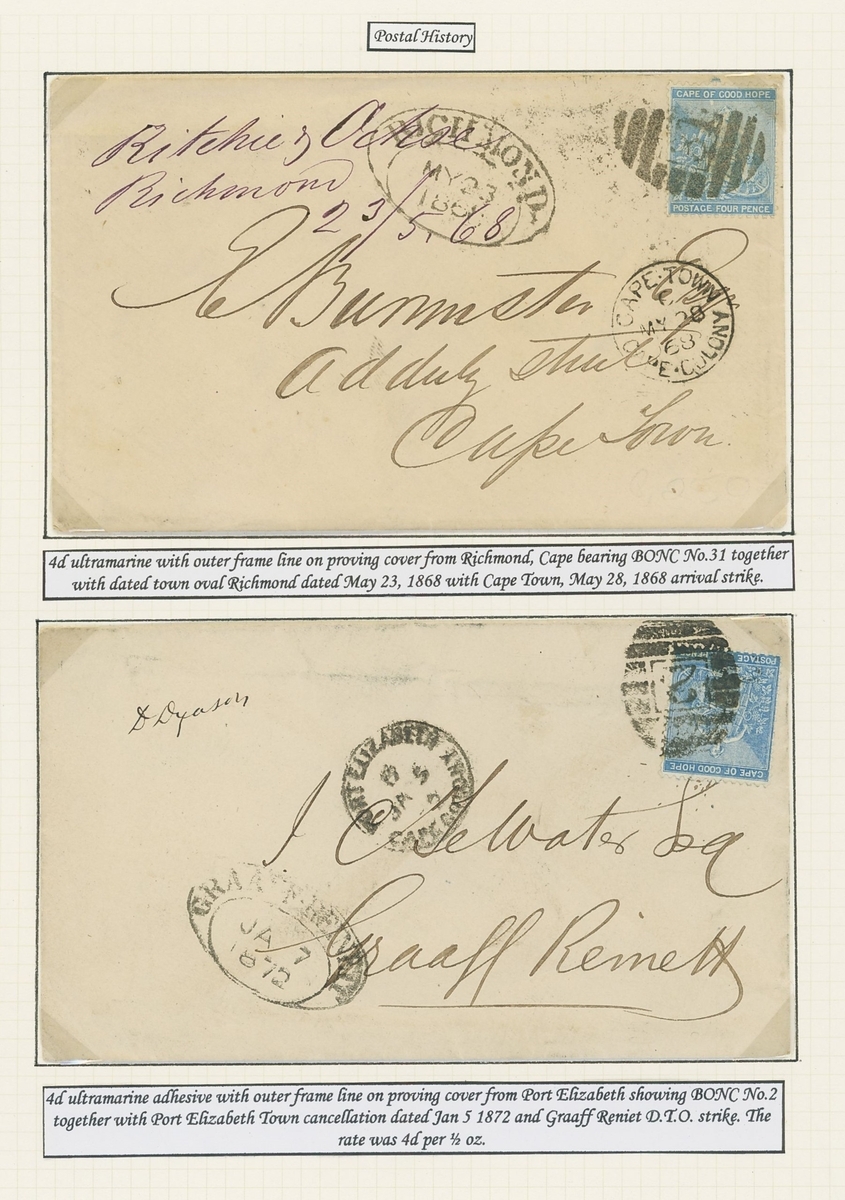 Postal History
CAPE OF GOOD HOPE
POSTAGE FOUR PENCE
RICHMOND
MY 23
Ritchie & Ochse
Richmond
23/5/68
CAPE·TOWN
MY 28
68
CAPE·COLONY
E Burmester
Adderly
Cape Town
4d ultramarine with outer frame line on proving cover from Richmond, Cape bearing BONC No.31 together
with dated town oval Richmond dated May 23, 1868 with Cape Town, May 28, 1868 arrival strike.
2
POSTAGE
CAPE OF GOOD HOPE
D Dyason
PORT ELIZABETH
JA 5
J
Esq
Graaff Reinett
GRAAFF-REINET
JA 7
1872
4d ultramarine adhesive with outer frame line on proving cover from Port Elizabeth showing BONC No.2
together with Port Elizabeth Town cancellation dated Jan 5 1872 and Graaff Reniet D.T.O. strike. The
rate was 4d per ½ oz.